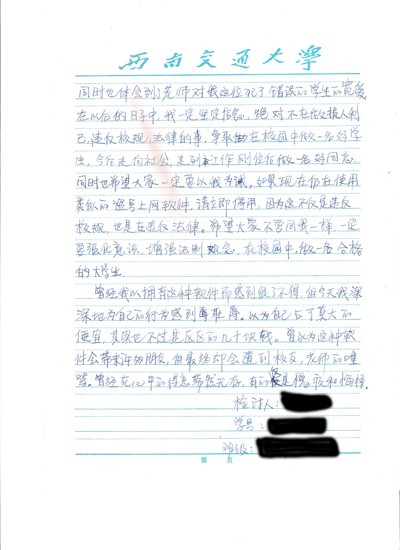 西南交通大学
同时也体会到老师对我这位犯了错误的学生的宽容
在以后的日子中,我一定坚定信念,绝对不在做损人利
己,违反校规,法律的事。争取在校园中做一名好学
生,今后走向社会,走到工作刚位位做一名好同志。
同时也希望大家一定要以我为诫,如果现在仍在使用
类似的盗号上网软件,请立即停用,因为这不仅是违反
校规,也是在违反法律。希望大家不要向我一样,一定
要强化意识,增强法制观念,在校园中,做一名合格
的大学生.
曾经我以拥有这种软件而感到很了不得,但今天我深
深地为自己的行为感到羞耻辱。以为自己占了莫大的
便宜,其实也不过是区区的几十块钱。曾以为这种软
件会带来许多朋友,但最终却会遭到校友,老师的唾
骂。曾经在心中的得意荡然无存,有的只是愧疚和悔恨.
检讨人:
学号:
班级:
第 页